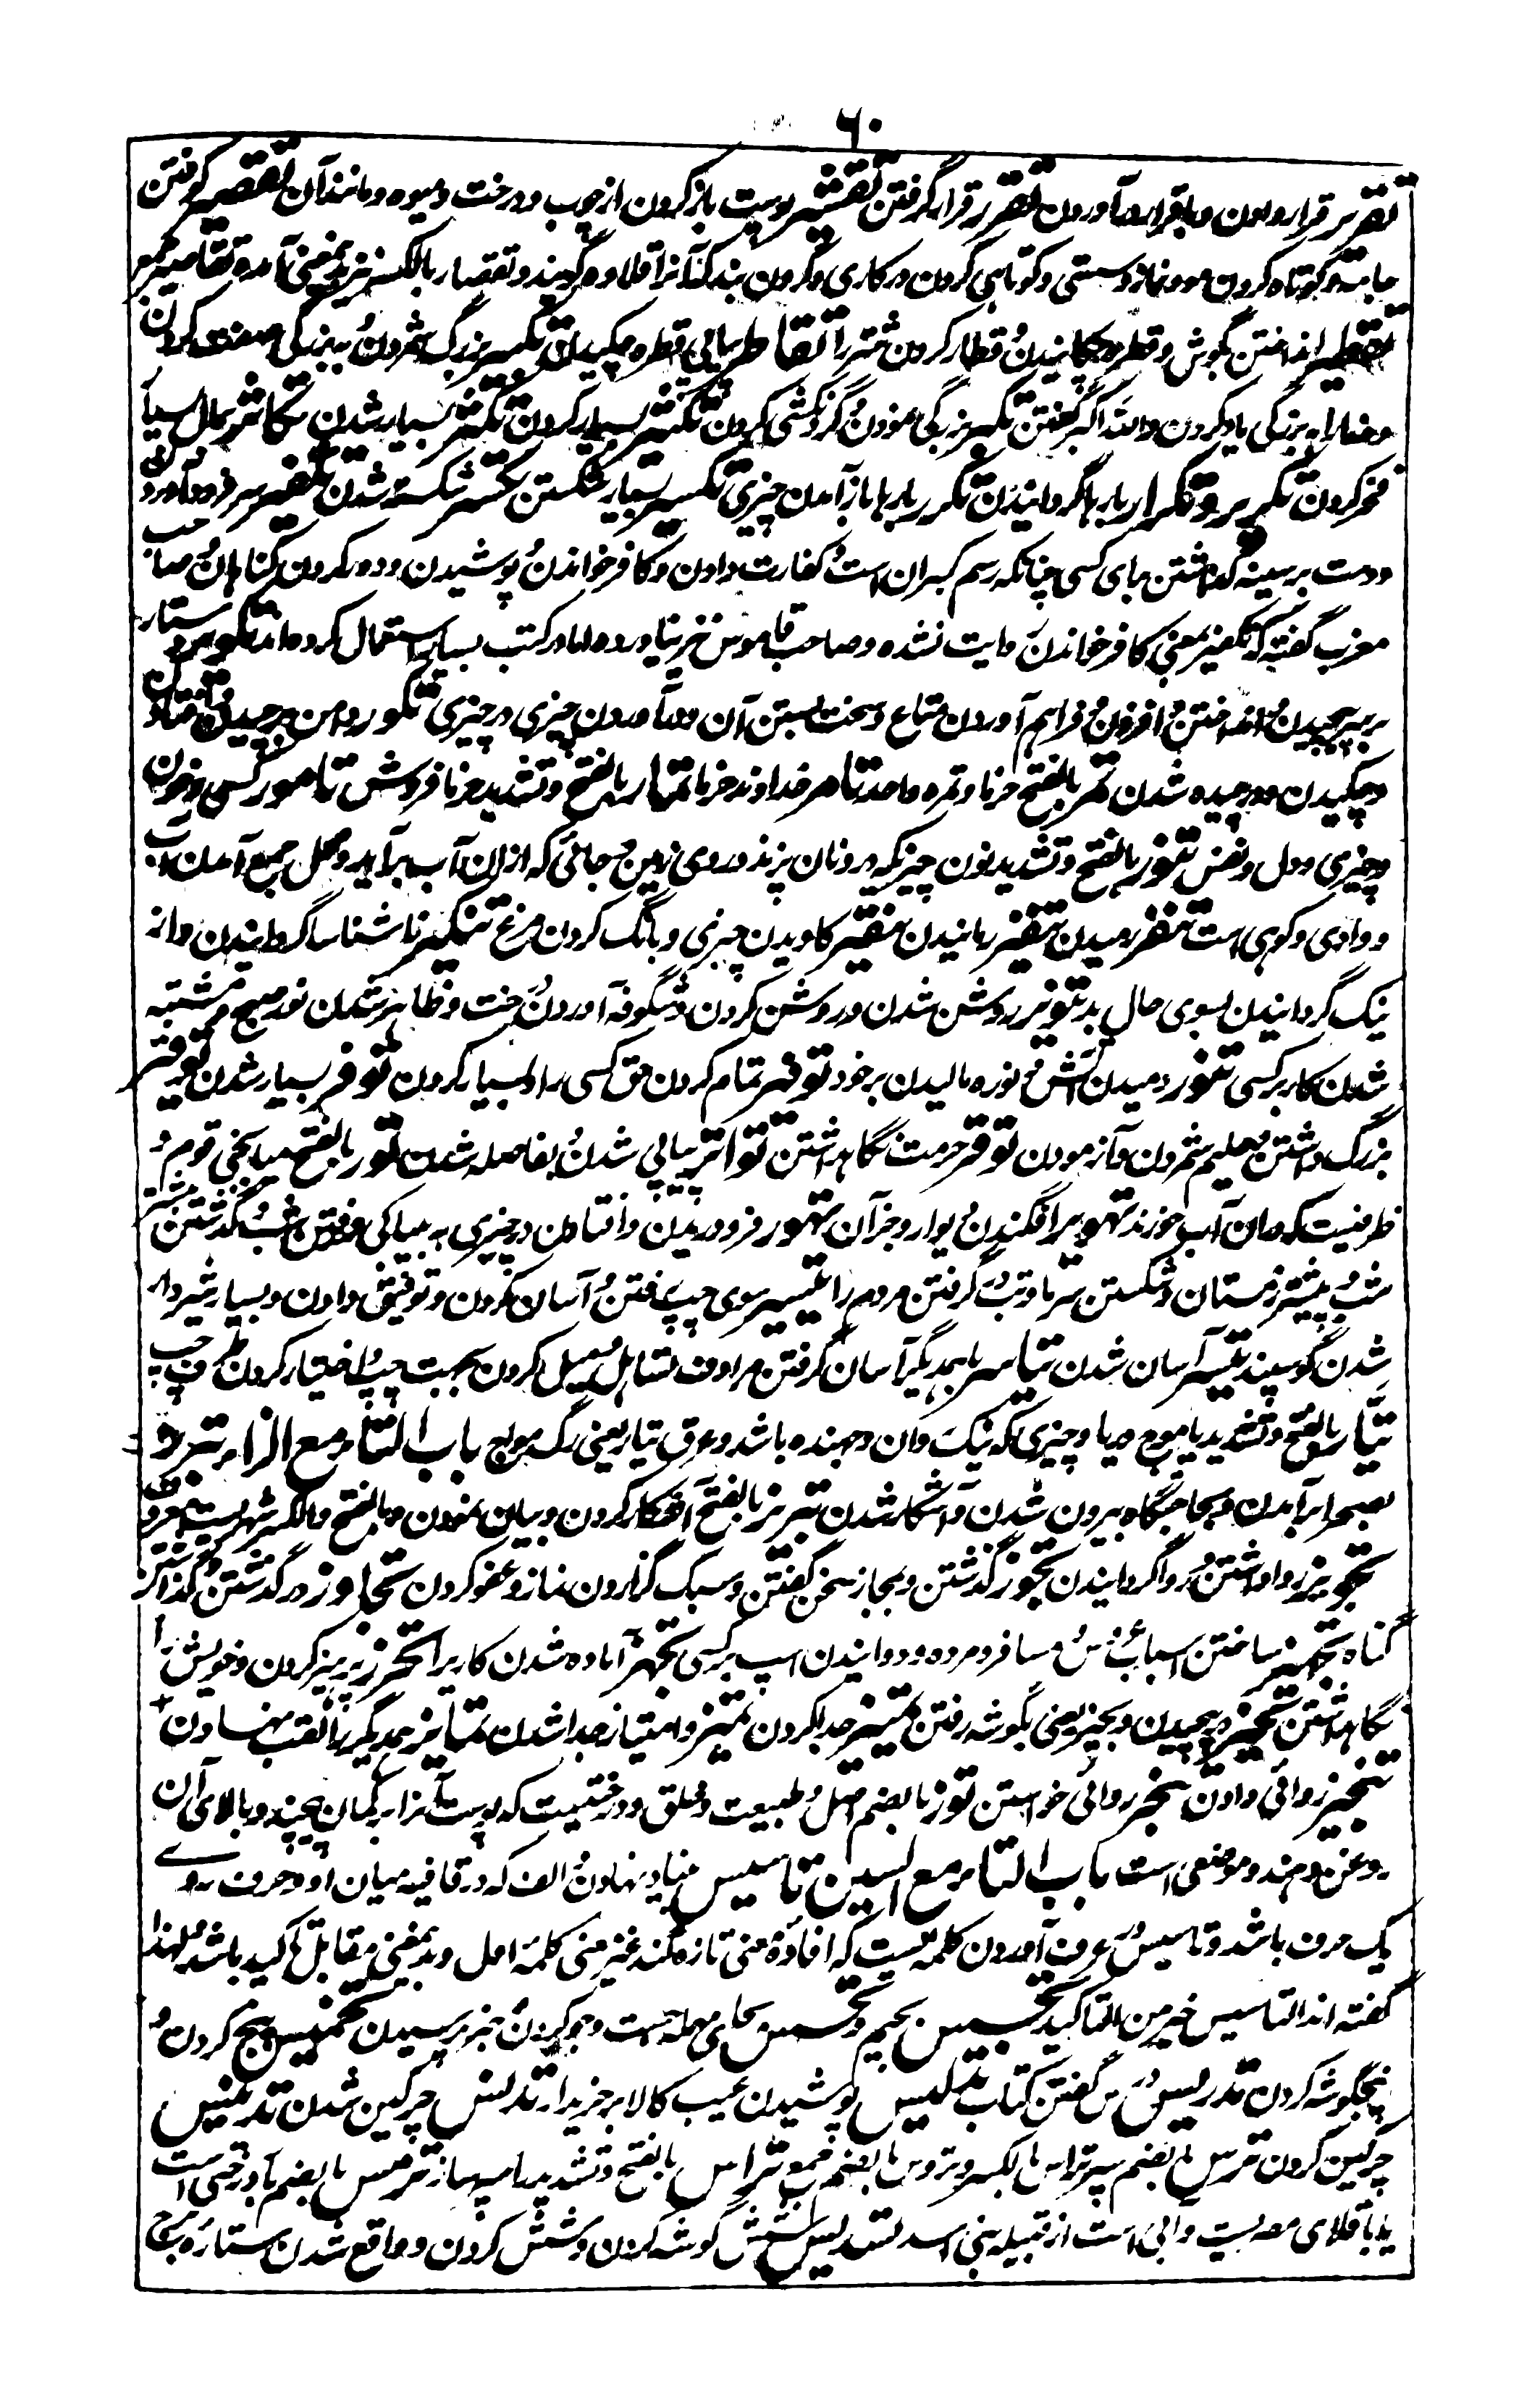 ۶۰
تقریر قرار دادن و باقرار آوردن تقرر قرار گرفتن تقشیر پوست باز کردن از چوب و درخت و میوه و مانند آن تقصیر کوفتن
جامه و کوتاه کردن مو و نماز و سستی و کوتاهی کردن در کاری و گردن بند که آنرا قلاوه گویند و تقصار بالکسر نیز بمعنی آمده تقاصیر جمع
تقطیر انداختن بگوش و قطره چکانیدن و قطار کردن شتر را تقاطر پیاپی قطره چکیدن تکبیر بزرگ شمردن و به بزرگی صفت کردن
و خدا را به بزرگی یاد کردن و الله اکبر گفتن تکبر بزرگی نمودن و گردنکشی کردن تکثیر بسیار کردن تکثر بسیار شدن تکاثر بمال بسیار
فخر کردن تکریر و تکرار بارها گردانیدن تکرر بارها باز آمدن چیزی تکسیر بسیار شکستن تکسر شکسته شدن تکفیر سر فرود آوردن
و دست بر سینه گذاشتن برای کسی چنانکه رسم گبران است و کفارت دادن و کافر خواندن و پوشیدن و دور کردن گناهان و صاحب
مغرب گفته که تکفیر بمعنی کافر خواندن روایت نشده و صاحب قاموس نیز نیاورده اما در کتب بسیار استعمال کرده اند تکویر دستار
بر سر پیچیدن و انداختن و افزون و فراهم آوردن متاع و سخت بستن آن و در آوردن چیزی در چیزی تکور دامن برچیدن و افتادن
و چکیدن و در چیده شدن تمر بالفتح خرما و تمره واحد تامر خداوند خرما تمار بالفتح و تشدید خرما فروش تامور کسی و خون
و چیزی و دل و نفس تنور بالفتح و تشدید نون چیزیکه در و نان پزند و روی زمین و جائی که از ان آب برآید و محل جمع آمدن آب
و وادی و کوهی است تنفر رمیدن تنفیر رمانیدن تنقیر کاویدن چیزی و بانگ کردن مرغ تنکیر ناشناسا گردانیدن و از
نیک گردانیدن بسوی حال بد تنویر روشن شدن و روشن کردن و شگوفه آوردن درخت و ظاهر شدن نور صبح و مشتبه
شدن کار بر کسی تنور دمیدن آتش و نوره مالیدن بر خود توفیر تمام کردن حق کسی را و بسیار کردن توفر بسیار شدن توقیر
بزرگ داشتن و حلیم شمردن و آزمودن توقر حرمت نگاهداشتن تواتر پیاپی شدن و بفاصله شدن تور بالفتح میانجی قوم و
ظرفیست که دران آب خورند تهویر افگندن دیوار و جز آن تهور فرو ریدن و افتادن در چیزی به بیباکی و رفتن شب و گذشتن بیشتر
شب و بیشتر زمستان و شکستن سرما و تب گرفتن مردم را تیسیر سوی چپ رفتن و آسان کردن و توفیق دادن و بسیار شیر دار
شدن گوسپند تیسر آسان شدن تیاسر باهمدیگر آسان گرفتن مرادف تساهل و میل کردن بجهت چپ و اختیار کردن طرف چپ
تیار بالفتح و تشدید یا موج دریا و چیزی که نیک روان و جهنده باشد و عرق تیار یعنی رگ مواج باب التاء مع الزاء تبرز
بصحرا برآمدن و بحاجتگاه بیرون شدن و آشکار شدن تبریز بالفتح آشکار کردن و بیان نمودن و بالفتح و بالکسر شهریست معروف
تجویز روا داشتن و روا گردانیدن تجوز گذشتن و بمجاز سخن گفتن و سبک گزاردن نماز و عفو کردن تجاوز در گذشتن و گذاشتن
گناه تجهیز ساختن اسباب عروس و مسافر و مرده و دوانیدن اسپ بر کسی تجهز آماده شدن کار برا تحرز پرهیز کردن و خویش را
نگاهداشتن تحیز در پیچیدن و بحیز یعنی بگوشه رفتن تمییز جدا کردن تمیز و امتیاز جدا شدن تنابز همدیگر را لقب نهادن
تنجیز روائی دادن تنجز روائی خواستن توز بالضم اصل و طبیعت و خلق و درختیست که پوست آنرا بر کمان پیچند و بالای آن
روغن دهند و موضعی است باب التاء مع السین تاسیس بنیاد نهادن و الف که در قافیه میان او و حرف روے
یک حرف باشد و تاسیس در عرف آوردن کلمه ایست که افاده معنی تازه کند غیر معنی کلمه اول و بدین معنی مقابل تاکید باشد و لهذا
گفته اند التاسیس خیر من التاکید تجسیس بجیم و تحسیس بحای مهمله جست و جو کردن و خبر پرسیدن تخمیس پنج کردن و
پنجگوشه کردن تدریس درس گفتن کتاب تدلیس پوشیدن عیب کالا بر خریدار تدنس چرگین شدن تدنیس
چرگین کردن ترس بالضم سپر تراس بالکسر و تروس بالضم جمع تراس بالفتح و تشدید را سپرساز ترمس بالضم باد درختی است
یا باقلای مصریست و آبی است از قبیله بنی اسد تسدیس شش گوشه کردن و شش کردن و واقع شدن ستاره ببرج